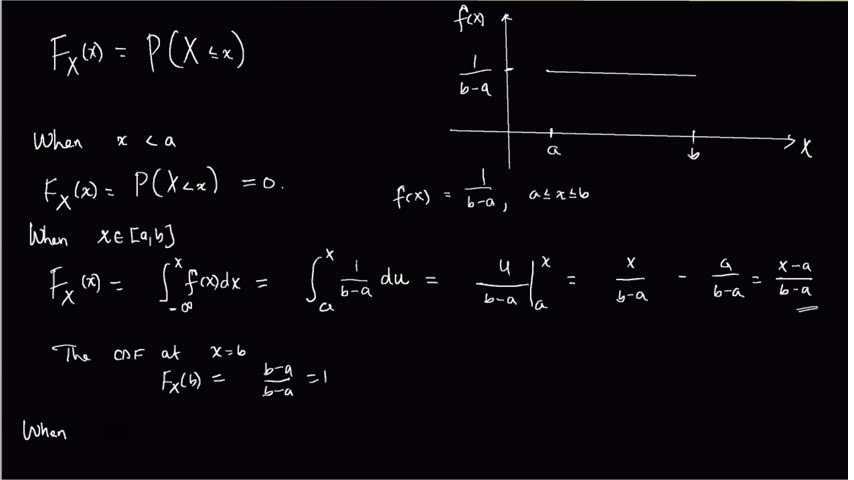 F_X(x) = P(X ≤ x)
f(x)
1/(b-a)
a
b
x
When x < a
F_X(x) = P(X < x) = 0.
f(x) = 1/(b-a), a ≤ x ≤ b
When x ∈ [a,b]
F_X(x) = ∫_{-∞}^{x} f(x)dx = ∫_{a}^{x} 1/(b-a) du = u/(b-a) |_{a}^{x} = x/(b-a) - a/(b-a) = (x-a)/(b-a)
The CDF at x=b
F_X(b) = (b-a)/(b-a) = 1
When